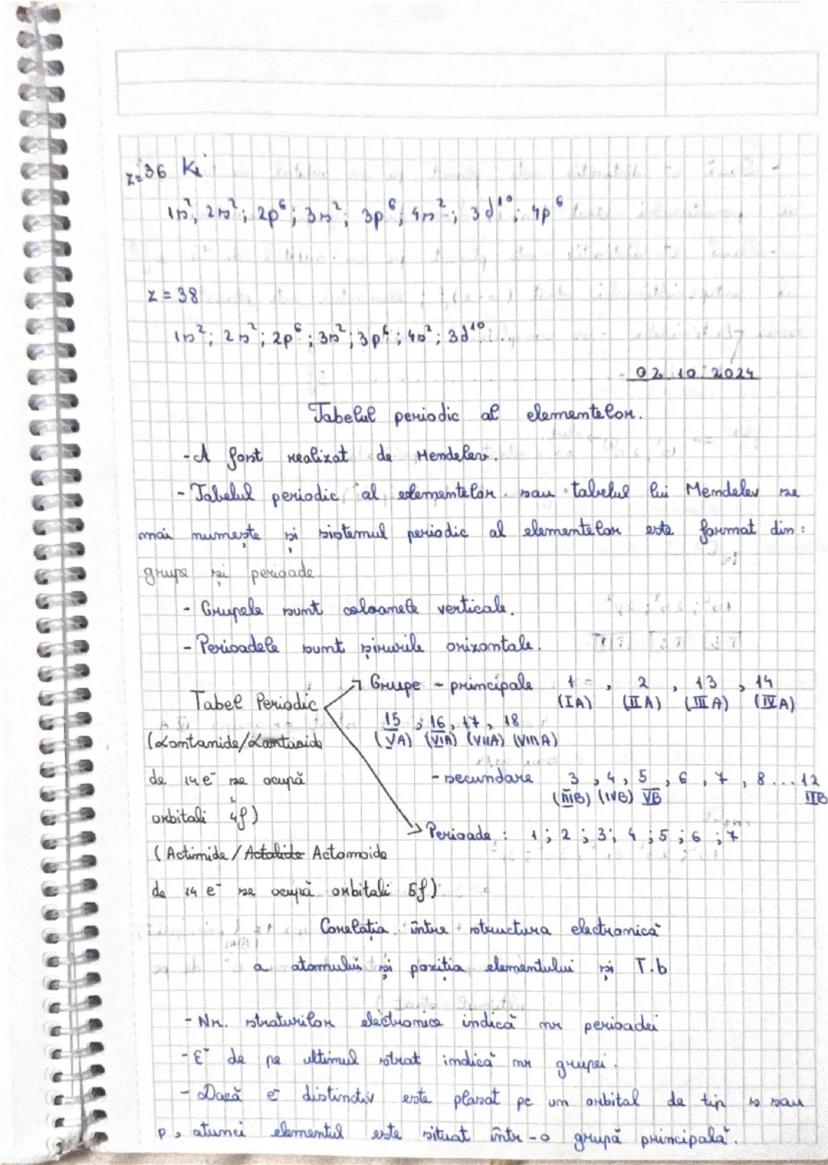 z=36 Kr
1s²; 2s²; 2p⁶; 3s²; 3p⁶; 4s²; 3d¹⁰; 4p⁶
z = 38
1s²; 2s²; 2p⁶; 3s²; 3p⁶; 4s²; 3d¹⁰
02.10.2024
Tabelul periodic al elementelor.
- A fost realizat de Mendelev.
- Tabelul periodic al elementelor sau tabelul lui Mendelev se
mai numește și sistemul periodic al elementelor este format din:
grupe și perioade
- Grupele sunt coloanele verticale.
- Perioadele sunt șirurile orizontale.
Tabel Periodic
Grupe - principale 1 , 2 , 13 , 14
(IA) (IIA) (IIIA) (IVA)
15 , 16, 17, 18
(VA) (VIA) (VIIA) (VIIIA)
- secundare 3 , 4 , 5 , 6 , 7 , 8 ... 12
(IIIB) (IVB) VB IIB
Perioade : 1 ; 2 ; 3 ; 4 ; 5 ; 6 ; 7
(Lantanide/Lantanoide
de 14 e⁻ se ocupă
orbitali 4f)
(Actimide/ Actomoide
de 14 e⁻ se ocupă orbitali 5f)
Corelația între structura electronică
a atomului și poziția elementului și T.b
- Nr. straturilor electronice indică nr perioadei
- E⁻ de pe ultimul strat indică nr grupei.
- Dacă e⁻ distinctiv este plasat pe un orbital de tip s sau
p, atunci elementul este situat într-o grupă principală.